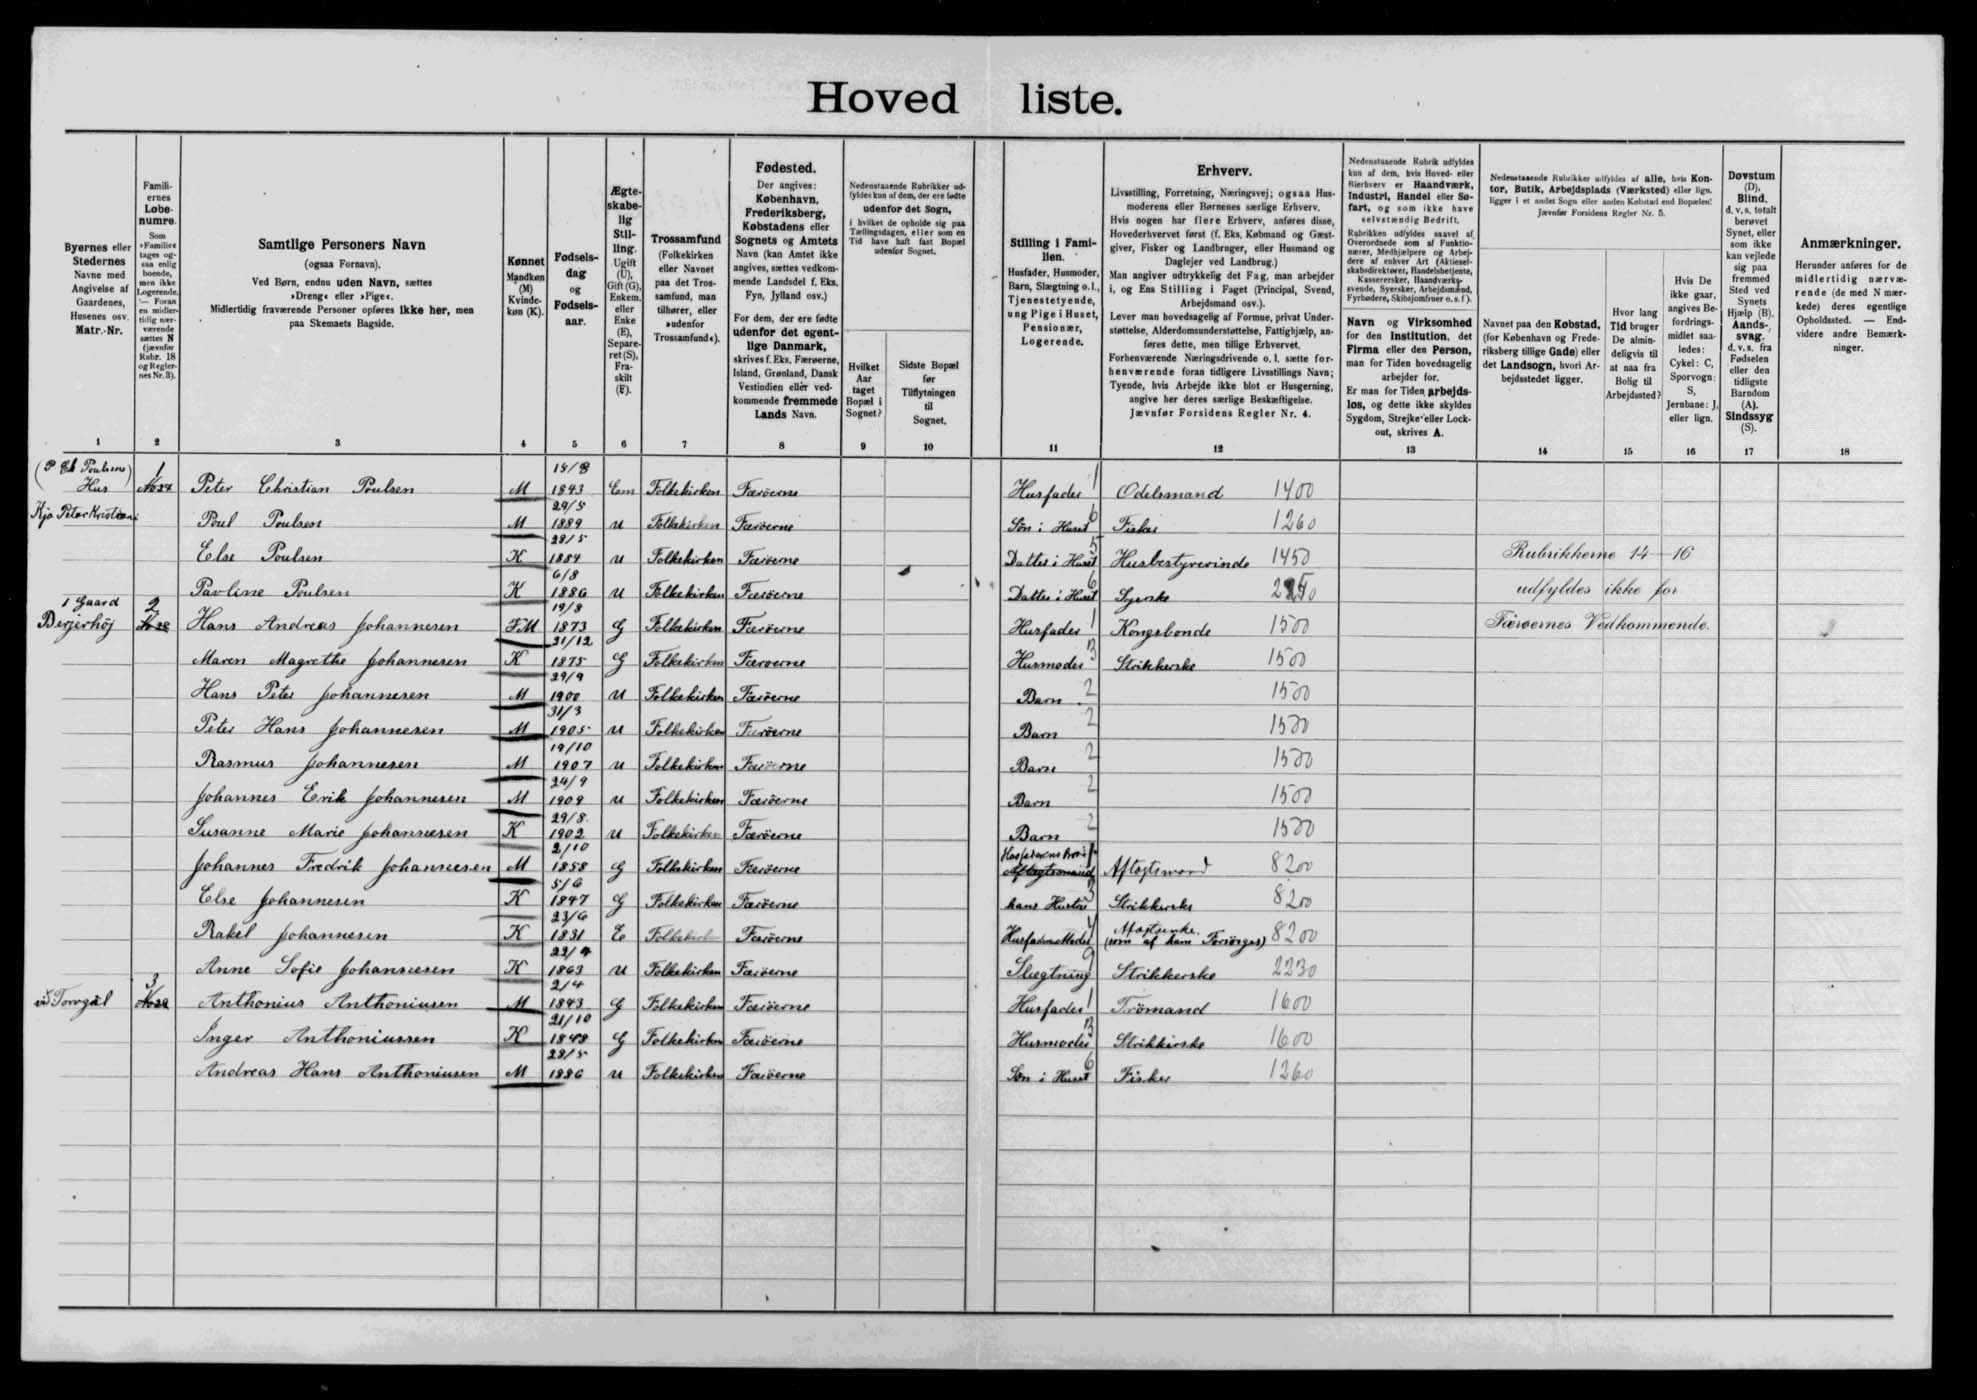 Hovedliste.
Byernes eller Stedernes Navne med Angivelse af Gaardenes, Husenes osv. Matr.-Nr.
Familiernes Løbenumre. Som »Familie« tages ogsaa enlig boende, men ikke Logerende. — Foran en midlertidig nærværende sættes N (jævnfør Rubr. 18 og Regler- nes Nr. 3).
Samtlige Personers Navn
(ogsaa Fornavn).
Ved Børn, endnu uden Navn, sættes
»Dreng« eller »Pige«.
Midlertidig fraværende Personer opføres ikke her, men
paa Skemaets Bagside.
Kønnet Mandkøn (M) Kvindekøn (K).
Fødselsdag og Fødselsaar.
Ægteskabelig Stilling. Ugift (U), Gift (G), Enkem. eller Enke (E), Separeret (S), Fraskilt (F).
Trossamfund (Folkekirken eller Navnet paa det Trossamfund, man tilhører, eller »udenfor Trossamfund«).
Fødested.
Der angives: København, Frederiksberg, Købstadens eller Sognets og Amtets Navn (kan Amtet ikke angives, sættes vedkommende Landsdel f. Eks. Fyn, Jylland osv.)
For dem, der ere fødte udenfor det egentlige Danmark, skrives f. Eks. Færøerne, Island, Grønland, Dansk Vestindien eller vedkommende fremmede Lands Navn.
Nedenstaaende Rubrikker udfyldes kun af dem, der ere fødte udenfor det Sogn, i hvilket de opholde sig paa Tællingsdagen, eller som en Tid have haft fast Bopæl udenfor Sognet.
Hvilket Aar taget Bopæl i Sognet?
Sidste Bopæl før Tilflytningen til Sognet.
Stilling i Familien. Husfader, Husmoder, Barn, Slægtning o. l., Tjenestetyende, ung Pige i Huset, Pensionær, Logerende.
Erhverv.
Livsstilling, Forretning, Næringsvej; ogsaa Husmoderens eller Børnenes særlige Erhverv.
Hvis nogen har flere Erhverv, anføres disse, Hovederhvervet først (f. Eks. Købmand og Gæstgiver, Fisker og Landbruger, eller Husmand og Daglejer ved Landbrug.)
Man angiver udtrykkelig det Fag, man arbejder i, og Ens Stilling i Faget (Principal, Svend, Arbejdsmand osv.).
Lever man hovedsagelig af Formue, privat Understøttelse, Alderdomsunderstøttelse, Fattighjælp, anføres dette, men tillige Erhvervet.
Forhenværende Næringsdrivende o. l. sætte forhenværende foran tidligere Livsstillings Navn; Tyende, hvis Arbejde ikke blot er Husgerning, angive her deres særlige Beskæftigelse.
Jævnfør Forsidens Regler Nr. 4.
Nedenstaaende Rubrik udfyldes kun af dem, hvis Hoved- eller Bierhverv er Haandværk, Industri, Handel eller Søfart, og som ikke have selvstændig Bedrift.
Rubrikken udfyldes saavel af Overordnede som af Funktionærer, Medhjælpere og Arbejdere af enhver Art (Aktieselskabsdirektører, Handelsbetjente, Kasserersker, Haandværkssvende, Syersker, Arbejdsmænd, Fyrbødere, Skibsjomfruer o. s. f.).
Navn og Virksomhed for den Institution, det Firma eller den Person, man for Tiden hovedsagelig arbejder for.
Er man for Tiden arbejdsløs, og dette ikke skyldes Sygdom, Strejke eller Lockout, skrives A.
Nedenstaaende Rubrikker udfyldes af alle, hvis Kontor, Butik, Arbejdsplads (Værksted) eller lign. ligger i et andet Sogn eller anden Købstad end Bopælen! Jævnfør Forsidens Regler Nr. 5.
Navnet paa den Købstad, (for København og Frederiksberg tillige Gade) eller det Landsogn, hvori Arbejdsstedet ligger.
Hvor lang Tid bruger De almindeligvis til at naa fra Bolig til Arbejdssted?
Hvis De ikke gaar, angives Befordringsmidlet saaledes: Cykel: C, Sporvogn: S, Jernbane: J, eller lign.
Døvstum (D), Blind, d. v. s. totalt berøvet Synet, eller som ikke kan vejlede sig paa fremmed Sted ved Synets Hjælp (B). Aandssvag, d. v. s. fra Fødselen eller den tidligste Barndom (A). Sindssyg (S).
Anmærkninger.
Herunder anføres for de midlertidig nærværende (de med N mærkede) deres egentlige Opholdssted. — Endvidere andre Bemærkninger.
1 2 3 4 5 6 7 8 9 10 11 12 13 14 15 16 17 18
Hus 1 Peter Christian Poulsen M 18/8 1843 Em Folkekirken Færøerne Husfader 1 Odelsmand 1400
Poul Poulsen M 29/5 1889 u Folkekirken Færøerne Søn i Huset 6 Fisker 1260
Else Poulsen K 28/5 1884 u Folkekirken Færøerne Datter i Huset 5 Husbestyrerinde 1450 Rubrikkerne 14-16
Pavline Poulsen K 6/8 1886 u Folkekirken Færøerne Datter i Huset 6 Syerske udfyldes ikke for
1 Gaard Berjerhöj 2 Hans Andreas Johannesen M 19/8 1873 G Folkekirken Færøerne Husfader 1 Kongsbonde 1500 Færøernes Vedkommende.
Maren Magrethe Johannesen K 21/12 1875 G Folkekirken Færøerne Husmoder 3 Strikkerske 1500
Hans Peter Johannesen M 29/9 1900 u Folkekirken Færøerne Barn 2 1500
Peter Hans Johannesen M 31/3 1905 u Folkekirken Færøerne Barn 2 1500
Rasmus Johannesen M 19/10 1907 u Folkekirken Færøerne Barn 2 1500
Johannes Erik Johannesen M 24/9 1909 u Folkekirken Færøerne Barn 2 1500
Susanne Marie Johannesen K 29/8 1902 u Folkekirken Færøerne Barn 2 1500
Johannes Fredrik Johannesen M 2/10 1858 G Folkekirken Færøerne Aftægtsmand Aftægtsmand 8200
Else Johannesen K 5/6 1847 G Folkekirken Færøerne hans Hustru 3 Strikkerske 8200
Rakel Johannesen K 23/6 1831 E Folkekirken Færøerne Husfaderens Moder 4 Aftægtsenke. (som af ham Forsørges) 8200
Anne Sofie Johannesen K 1863 u Folkekirken Færøerne Slægtning 9 Strikkerske 2230
við Torvgøl 3 Anthonius Anthoniusen M 2/4 1843 G Folkekirken Færøerne Husfader 1 Trömand 1600
Inger Anthoniussen K 21/10 1848 G Folkekirken Færøerne Husmoder 3 Strikkerske 1600
Andreas Hans Anthoniusen M 28/5 1886 u Folkekirken Færøerne Søn i Huset 6 Fisker 1260